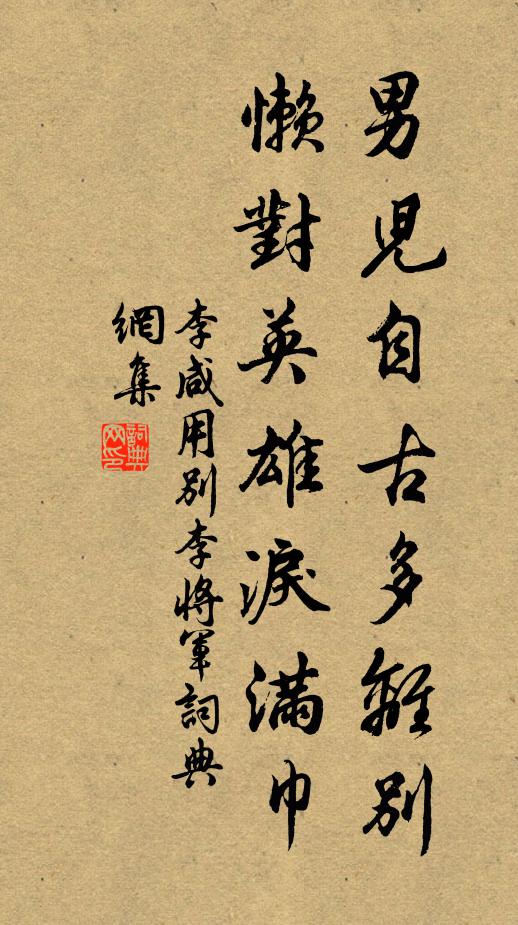 男兒自古多離別
懶對英雄淚滿巾
李咸用別李將軍詞典
網集
詞典
网印